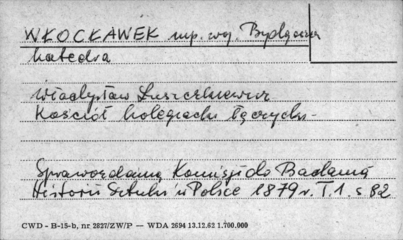 WŁOCŁAWEK woj. Bydgoszcz
katedra
Władysław Łuszczkiewicz
Kościół kolegiacki łęczycki -
Sprawozdania Komisji do Badania
Historii Sztuki w Polsce 1879 r. T. 1. s 82
CWD - B-15-b, nr 2827/ZW/P — WDA 2694 13.12.62 1.700.000